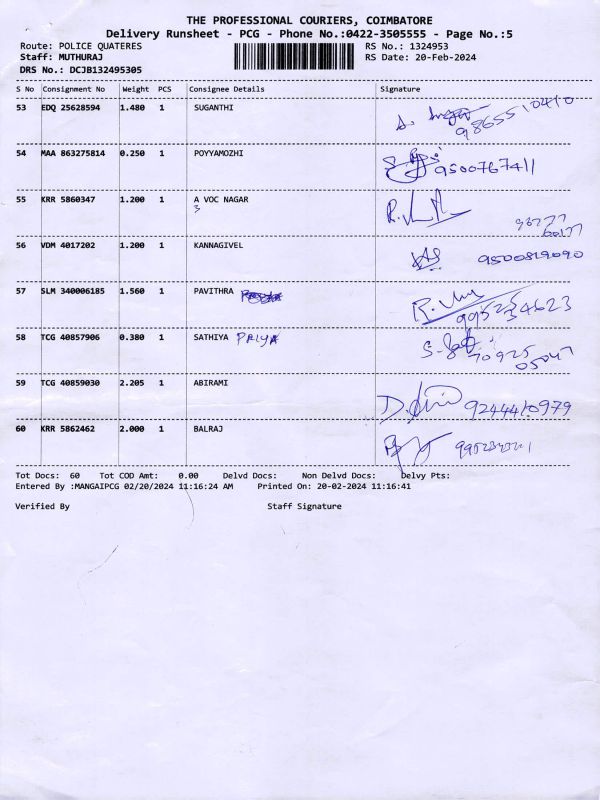 THE PROFESSIONAL COURIERS, COIMBATORE
Delivery Runsheet - PCG - Phone No.:0422-3505555 - Page No.:5
Route: POLICE QUATERES RS No.: 1324953
Staff: MUTHURAJ RS Date: 20-Feb-2024
DRS No.: DCJB132495305
S No Consignment No Weight PCS Consignee Details Signature
53 EDQ 25628594 1.480 1 SUGANTHI 9865510410
54 MAA 863275814 0.250 1 POYYAMOZHI 9500767411
55 KRR 5860347 1.200 1 A VOC NAGAR
3
56 VDM 4017202 1.200 1 KANNAGIVEL 9500819090
57 SLM 340006185 1.560 1 PAVITHRA 9952534623
58 TCG 40857906 0.380 1 SATHIYA PRIYA 70925
05047
59 TCG 40859030 2.205 1 ABIRAMI 9244410979
60 KRR 5862462 2.000 1 BALRAJ
Tot Docs: 60 Tot COD Amt: 0.00 Delvd Docs: Non Delvd Docs: Delvy Pts:
Entered By :MANGAIPCG 02/20/2024 11:16:24 AM Printed On: 20-02-2024 11:16:41
Verified By Staff Signature